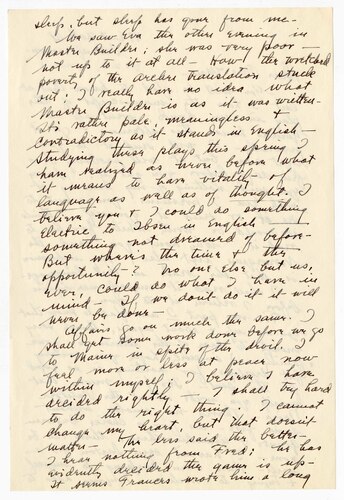 sleep, but sleep has gone from me –
We saw Eva the other evening in
Master Builder; she was very poor –
not up to it at all – How the wretched
poverty of the Archer translation stuck
out; I really have no idea what
Master Builder is as it was written –
It's rather pale, meaningless &
contradictory as it stands in English –
Studying these plays this spring I
have realized as never before what
it means to have vitality of
language as well as of thought. I
believe you & I could do something
electric to Ibsen in English –
something not dreamed of before –
But where's the time & the
opportunity – ? No one else but us,
ever, could do what I have in
mind – If we don't do it it will
never be done –
Affairs go on much the same. I
shall get some work done before we go
to Maine in spite of the devil. I
feel more or less at peace now
within myself; I believe I have
decided rightly – I shall try hard
to do the right thing; I cannot
change my heart, but that doesn't
matter – The less said the better –
I hear nothing from Fred; he has
evidently decided the game is up –
It seems Frances wrote him a long